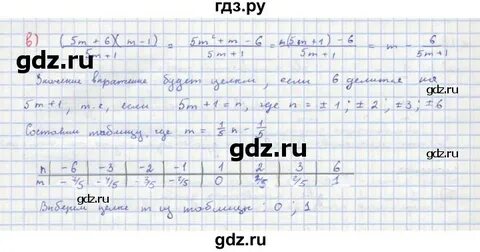 гдз.ру
в) (5m+6)(m-1)/5m+1 = 5m²+m-6/5m+1 = m(5m+1)-6/5m+1 = m - 6/5m+1
Значение выражение будет целым, если 6 делится на
5m+1, т.е., если 5m+1=n, где n = ±1; ±2; ±3; ±6
Составим таблицу, где m = 1/5 n - 1/5
n | -6 | -3 | -2 | -1 | 1 | 2 | 3 | 6
m | -7/5 | -4/5 | -3/5 | -2/5 | 0 | 1/5 | 2/5 | 1
Выберем целые m из таблицы: 0; 1
gdz.ru
gdz.ru
gdz.ru
gdz.ru
gdz.ru
gdz.ru